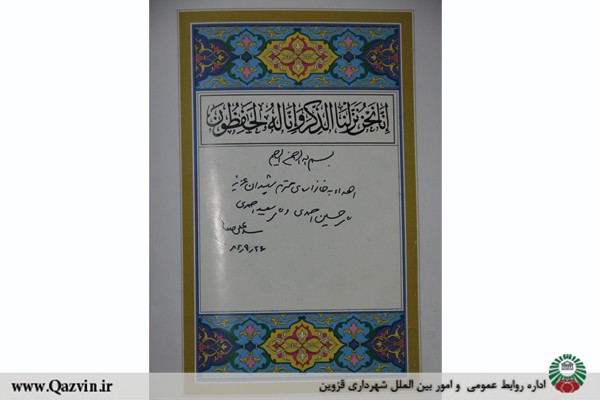 إنا نحن نزلنا الذكر وإنا له لحفظون
بسم الله الرحمن الرحیم
اهداء به خانواده‌ی محترم شهیدان عزیز
حسین احمدی و سعید احمدی
سید علی
۸۲٫۹٫۲۶
www.Qazvin.ir
اداره روابط عمومی و امور بین الملل شهرداری قزوین